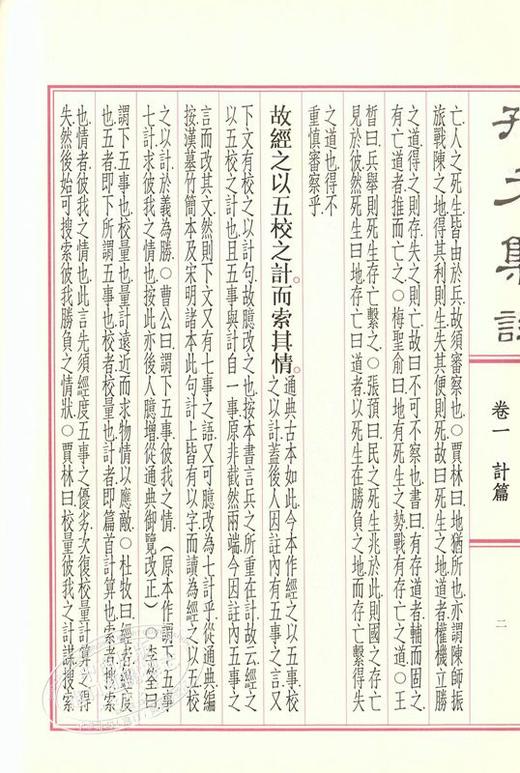 孙子集註
卷一 計篇
二
亡.人之死生皆由於兵.故須審察也.○賈林曰.地猶所也.亦謂陳師振
旅戰陳之地.得其利則生.失其便則死.故曰死生之地.道者權機立勝
之道.得之則存.失之則亡.故曰不可不察也.書曰.有存道者輔而固之.
有亡道者.推而亡之.○梅聖俞曰.地有死生之勢.戰有存亡之道.○王
晳曰.兵舉則死生存亡繫之.○張預曰.民之死生兆於此.則國之存亡
見於彼.然死生曰地.存亡曰道者.以死生在勝負之地.而存亡繫得失
之道也.得不
重慎審察乎.
故經之以五校之計.而索其情.通典古本如此.今本作經之以五事校
之以計.蓋後人因註內有五事之言.又
下文有校之以計句.故臆改之也.按本書言兵之所重在計.故云經之
以五校之計也.且五事與計自一事.原非截然兩端.今因註內五事之
言而改其文.然則下文又有七事之語.又可臆改為七計乎.從通典.編
按.漢墓竹簡本及宋明諸本此句計上皆有以字.而讀為經之以五.校
之以計.於義為勝.○曹公曰.謂下五事彼我之情.(原本作謂下五事
七計.求彼我之情也.按此亦後人臆增.從通典御覽改正)○李筌曰.
謂下五事也.校量也.量計遠近而求物情以應敵.○杜牧曰.經者.經度
也.五者.即下所謂五事也.校者.校量也.計者.即篇首計算也.索者.搜索
也.情者.彼我之情也.此言先須經度五事之優劣.次復校量計算之得
失.然後始可搜索彼我勝負之情狀.○賈林曰.校量彼我之計謀.搜索